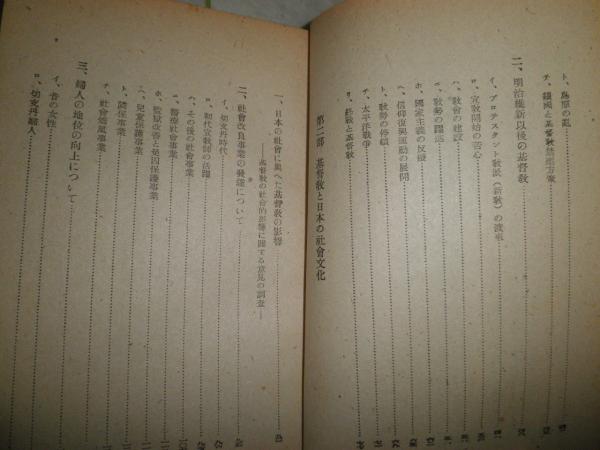 ト、島原の亂
チ、鎖國と基督敎禁壓方策
二、明治維新以後の基督敎
イ、プロテスタント敎派(新敎)の渡來
ロ、宣敎開始の苦心
ハ、敎會の建設
ニ、敎勢の躍進
ホ、國家主義の反擾
ヘ、信仰復興運動の展開
ト、敎勢の停頓
チ、太平洋戰爭
リ、終戰と基督敎
第二部 基督敎と日本の社會文化
一、日本の社會に與へた基督敎の影響
―基督敎の社會的影響に關する意見の調査―
二、社會改良事業の發達について
イ、切支丹時代
ロ、初代宣敎師の活躍
ハ、その後の社會事業
ニ、醫療社會事業
ホ、監獄改善と囚保護事業
ヘ、兒童保護事業
ト、隣保事業
チ、社會矯風事業
三、婦人の地位の向上について
イ、昔の女性
ロ、切支丹婦人